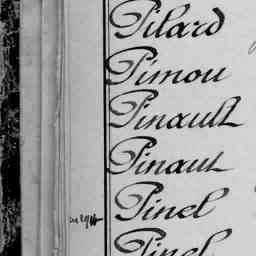 Pilard
Pimou
Pinault
Pinaut
Pinel
Pinel